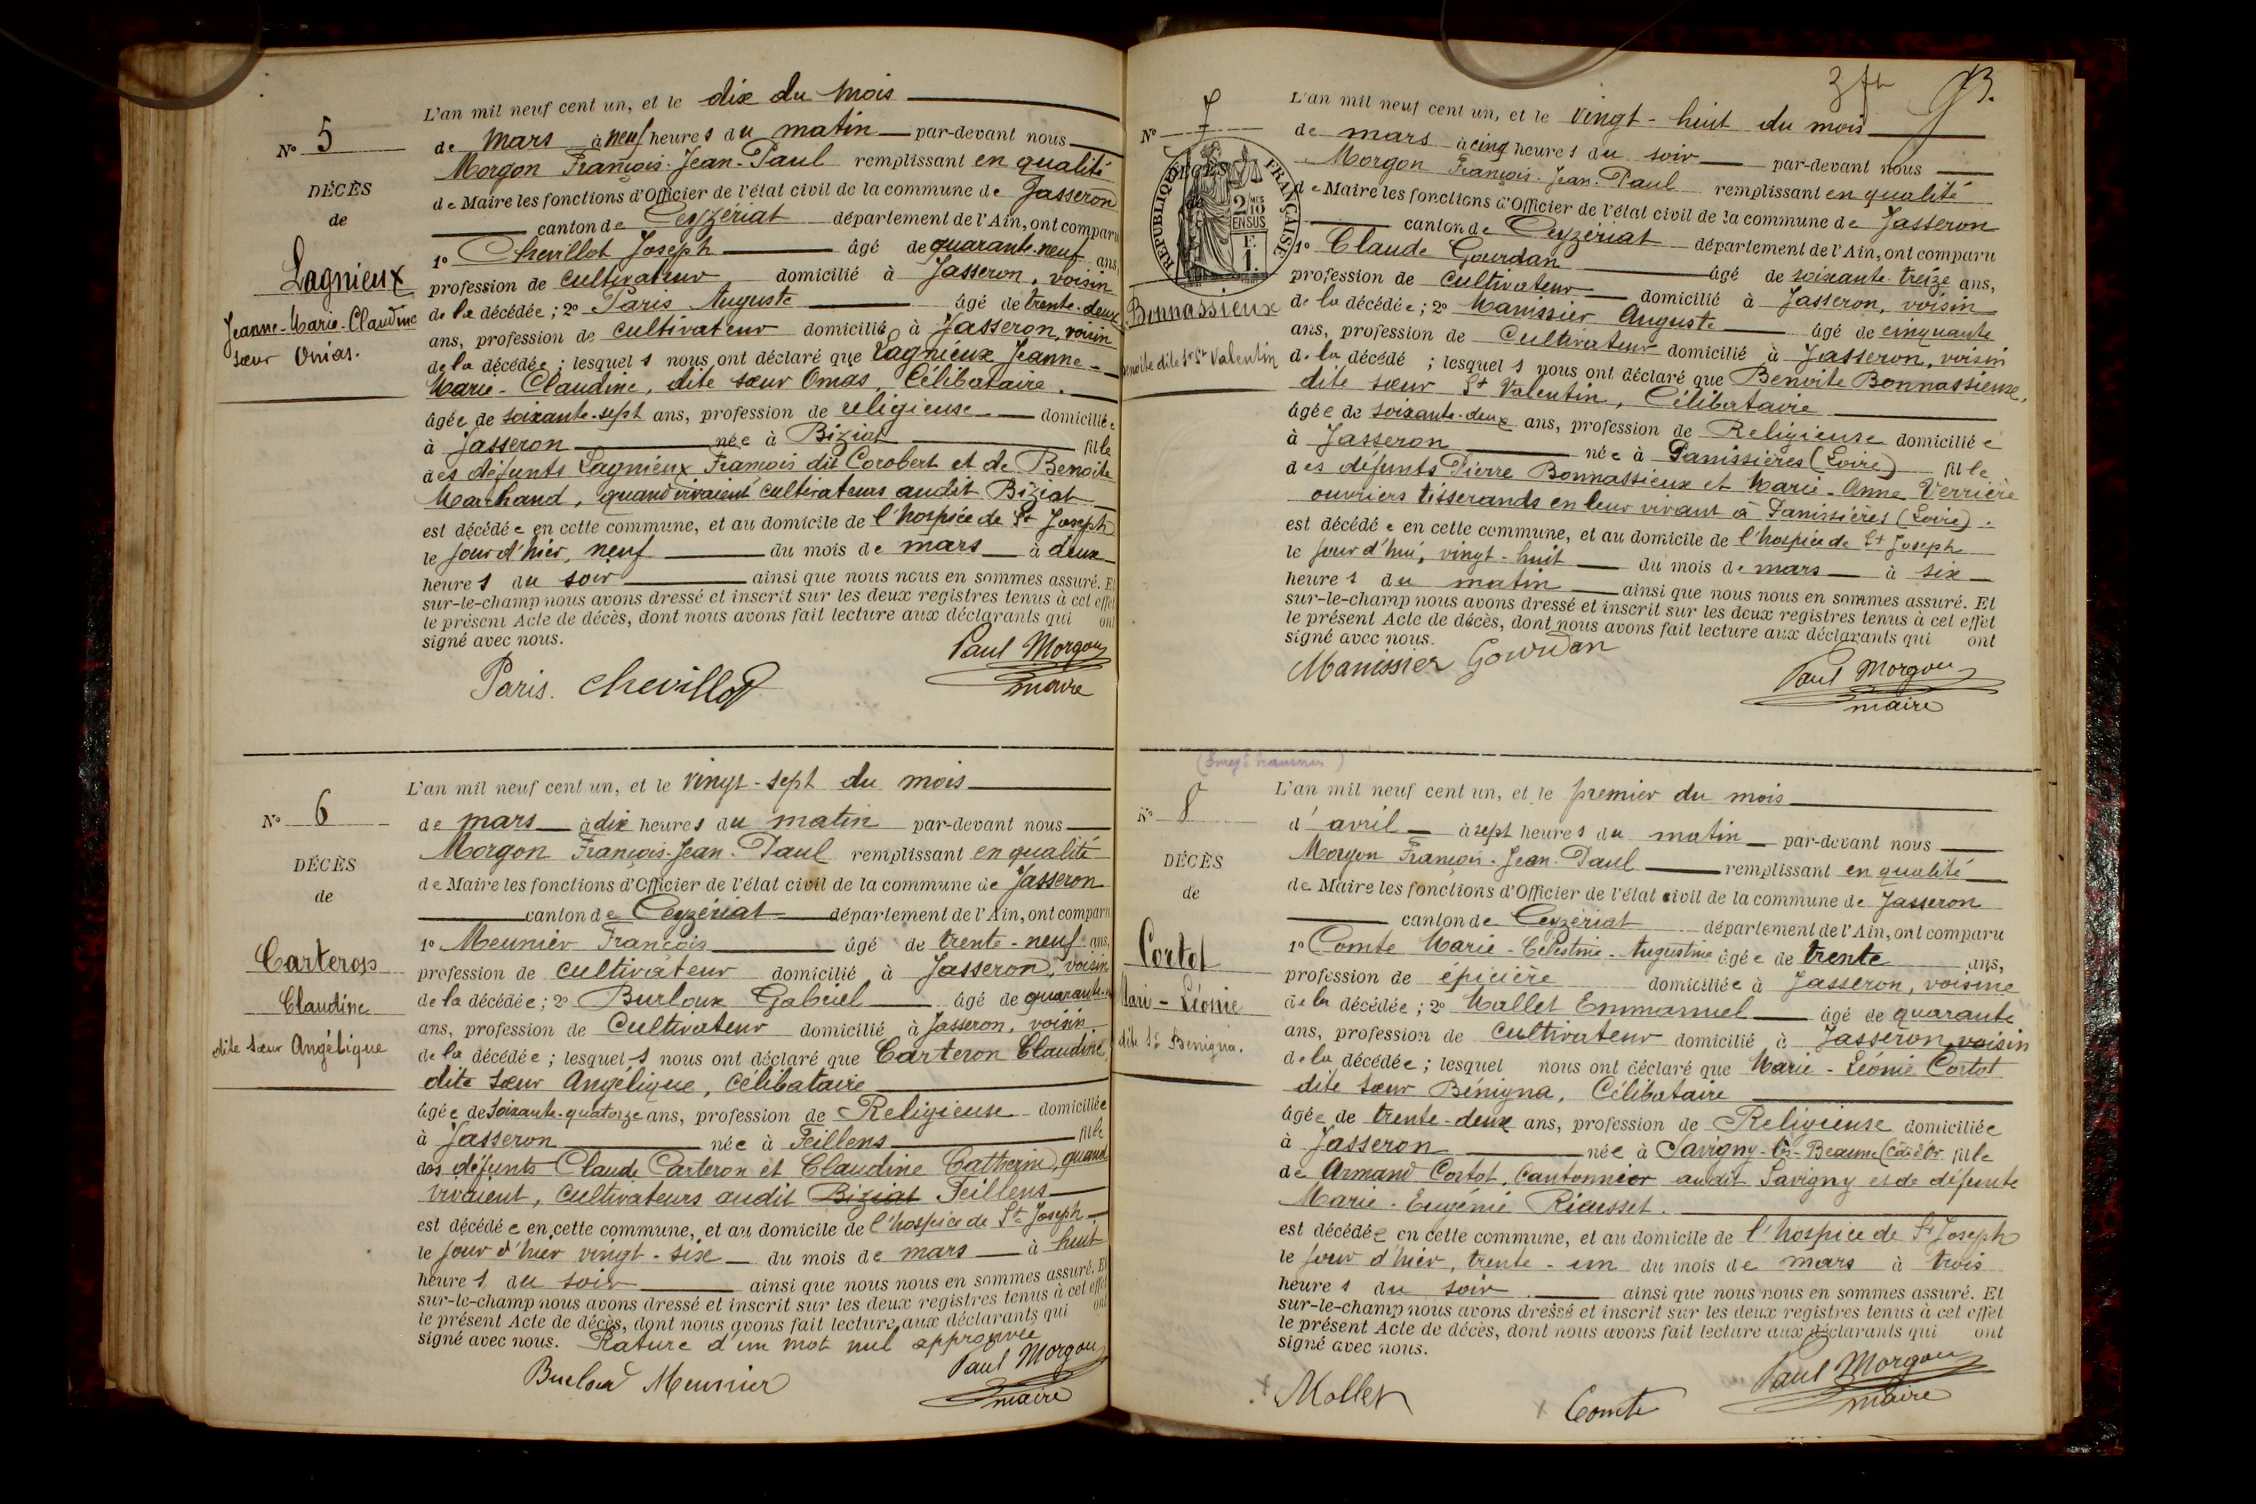 N° 5
DÉCÈS
de
Lagnieux
Jeanne-Marie-Claudine
sœur Onias.
L'an mil neuf cent un, et le dix du mois
de mars à neuf heures du matin par-devant nous
Morgon François-Jean-Paul remplissant en qualité
de Maire les fonctions d'Officier de l'état civil de la commune de Jasseron
canton de Ceyzériat département de l'Ain, ont comparu
1° Chevillot Joseph âgé de quarante-neuf ans,
profession de cultivateur domicilié à Jasseron, voisin
de la décédée; 2° Paris Auguste âgé de trente-deux
ans, profession de cultivateur domicilié à Jasseron, voisin
de la décédée; lesquels nous ont déclaré que Lagnieux Jeanne-
Marie-Claudine, dite sœur Onias, Célibataire.
âgée de soixante-sept ans, profession de religieuse domiciliée
à Jasseron née à Biziat fille
des défunts Lagnieux François dit Corobert et de Benoite
Marchand, quand vivaient cultivateurs audit Biziat
est décédée en cette commune, et au domicile de l'hospice de St Joseph
le jour d'hier, neuf du mois de mars à deux
heures du soir ainsi que nous nous en sommes assuré. Et
sur-le-champ nous avons dressé et inscrit sur les deux registres tenus à cet effet
le présent Acte de décès, dont nous avons fait lecture aux déclarants qui ont
signé avec nous.
Paris. Chevillot
Paul Morgon
maire
N° 6
DÉCÈS
de
Carteron
Claudine
dite sœur Angélique
L'an mil neuf cent un, et le vingt-sept du mois
de mars à dix heures du matin par-devant nous
Morgon François-Jean-Paul remplissant en qualité
de Maire les fonctions d'Officier de l'état civil de la commune de Jasseron
canton de Ceyzériat département de l'Ain, ont comparu
1° Meunier François âgé de trente-neuf ans,
profession de cultivateur domicilié à Jasseron, voisin
de la décédée; 2° Burloux Gabriel âgé de quarante
ans, profession de Cultivateur domicilié à Jasseron, voisin
de la décédée; lesquels nous ont déclaré que Carteron Claudine
dite sœur Angélique, célibataire
âgée de soixante-quatorze ans, profession de Religieuse domiciliée
à Jasseron née à Feillens fille
des défunts Claude Carteron et Claudine Catherin, quand
vivaient, cultivateurs audit Biziat Feillens
est décédée en cette commune, et au domicile de l'hospice de St Joseph
le jour d'hier vingt-six du mois de mars à huit
heures du soir ainsi que nous nous en sommes assuré. Et
sur-le-champ nous avons dressé et inscrit sur les deux registres tenus à cet effet
le présent Acte de décès, dont nous avons fait lecture aux déclarants qui ont
signé avec nous. Rature d'un mot nul approuvée
Burloud Meunier
Paul Morgon
maire
N° 7
DÉCÈS
de
RÉPUBLIQUE FRANÇAISE
2/10 EN SUS
F. 1.
Bonnassieux
Benoite dite Sr St Valentin
L'an mil neuf cent un, et le vingt-huit du mois
de mars à cinq heures du soir par-devant nous
Morgon François-Jean-Paul remplissant en qualité
de Maire les fonctions d'Officier de l'état civil de la commune de Jasseron
canton de Ceyzériat département de l'Ain, ont comparu
1° Claude Gourdan âgé de soixante-treize ans,
profession de cultivateur domicilié à Jasseron, voisin
de la décédée; 2° Manissier Auguste âgé de cinquante
ans, profession de Cultivateur domicilié à Jasseron, voisin
de la décédé ; lesquels nous ont déclaré que Benoite Bonnassieux,
dite sœur St Valentin, Célibataire
âgée de soixante-deux ans, profession de Religieuse domiciliée
à Jasseron née à Panissières (Loire) fille
des défunts Pierre Bonnassieux et Marie-Anne Verrière
ouvriers tisserands en leur vivant à Panissières (Loire).
est décédée en cette commune, et au domicile de l'hospice de St Joseph
le jour d'hui, vingt-huit du mois de mars à six
heures du matin ainsi que nous nous en sommes assuré. Et
sur-le-champ nous avons dressé et inscrit sur les deux registres tenus à cet effet
le présent Acte de décès, dont nous avons fait lecture aux déclarants qui ont
signé avec nous.
Manissier Gourdan
Paul Morgon
maire
N° 8
DÉCÈS
de
Cortot
Marie-Léonie
dite Sr Bénigna.
L'an mil neuf cent un, et le premier du mois
d'avril à sept heures du matin par-devant nous
Morgon François-Jean-Paul remplissant en qualité
de Maire les fonctions d'Officier de l'état civil de la commune de Jasseron
canton de Ceyzériat département de l'Ain, ont comparu
1° Comte Marie-Célestine-Augustine âgée de trente ans,
profession de épicière domiciliée à Jasseron, voisine
de la décédée; 2° Mallet Emmanuel âgé de quarante
ans, profession de cultivateur domicilié à Jasseron, voisin
de la décédée; lesquel nous ont déclaré que Marie-Léonie Cortot
dite sœur Bénigna, Célibataire
âgée de trente-deux ans, profession de Religieuse domiciliée
à Jasseron née à Savigny-lès-Beaune (Côte d'Or fille
de Armand Cortot, cantonnier audit Savigny et de défunte
Marie-Eugénie Riausset.
est décédée en cette commune, et au domicile de l'hospice de St Joseph
le jour d'hier, trente-un du mois de mars à trois
heures du soir ainsi que nous nous en sommes assuré. Et
sur-le-champ nous avons dressé et inscrit sur les deux registres tenus à cet effet
le présent Acte de décès, dont nous avons fait lecture aux déclarants qui ont
signé avec nous.
Mallet Comte
Paul Morgon
maire